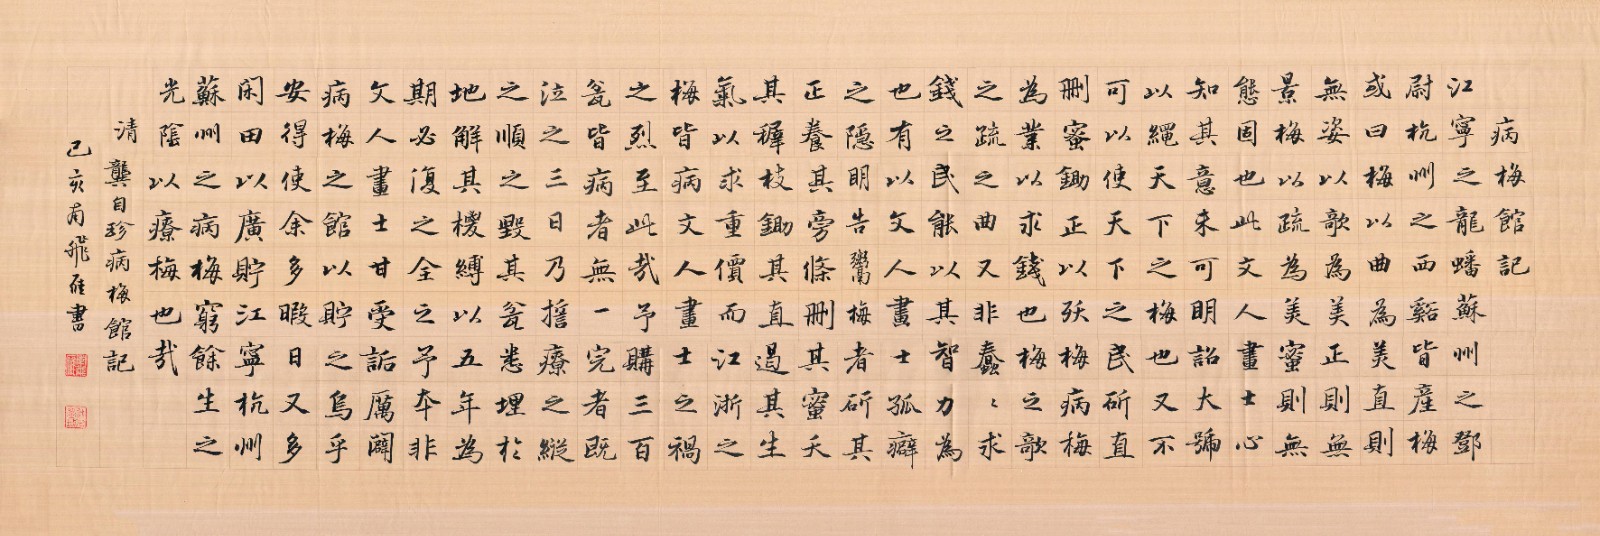 病梅館記
江寧之龍蟠蘇州之鄧
尉杭州之西谿皆產梅
或曰梅以曲為美直則
無姿以歌為美正則無
景梅以疏為美蜜則無
態固也此文人畫士心
知其意未可明詔大號
以繩天下之梅也又不
可以使天下之民斫直
刪蜜鋤正以殀梅病梅
為業以求錢也梅之歌
之疏之曲又非蠢〻求
錢之民能以其智力為
也有以文人畫士孤癖
之隱明告鬻梅者斫其
正養其旁條刪其蜜夭
其穉枝鋤其直遏其生
氣以求重價而江浙之
梅皆病文人畫士之禍
之烈至此哉予購三百
瓮皆病者無一完者既
泣之三日乃誓療之縱
之順之毀其瓮悉埋於
地解其椶縛以五年為
期必復之全之予本非
文人畫士甘受詬厲闢
病梅之館以貯之烏乎
安得使余多暇日又多
閑田以廣貯江寧杭州
蘇州之病梅窮餘生之
光陰以療梅也哉
清龔自珍病梅館記
己亥飛雁書